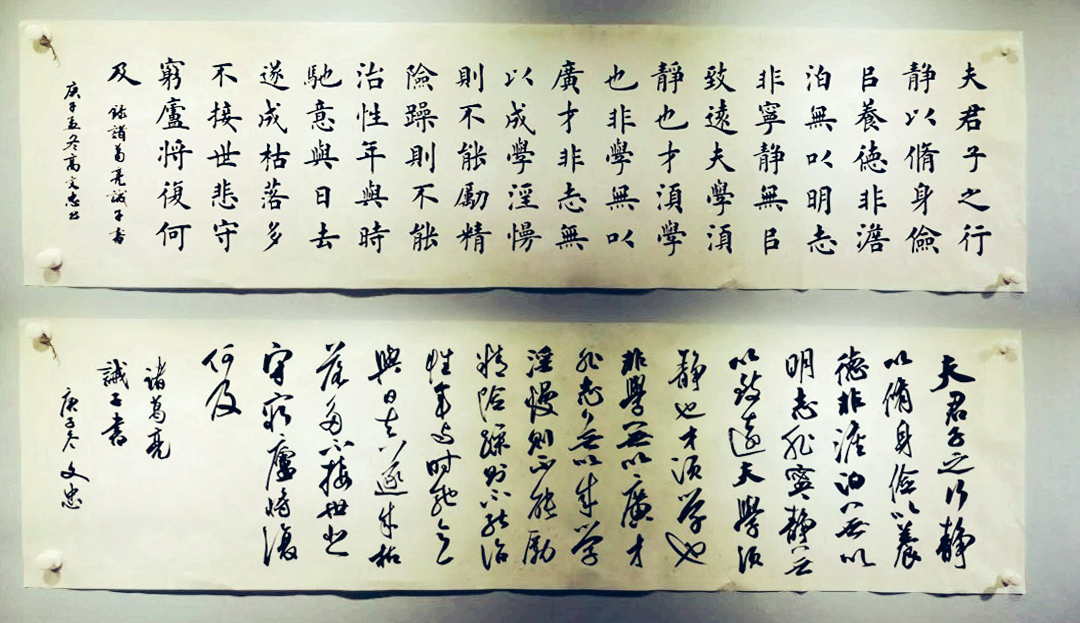 夫君子之行
静以脩身儉
㠯養德非澹
泊無以明志
非寧静無㠯
致遠夫學須
静也才須學
也非學無以
廣才非志無
以成學淫慢
則不能勵精
險躁則不能
治性年與時
馳意與日去
遂成枯落多
不接世悲守
窮廬將復何
及 錄諸葛亮誡子書
庚子孟冬高文忠書
夫君子之行静
以脩身儉以養
德非澹泊無以
明志非寧静無
以致遠夫學須
静也才須学也
非學無以廣才
非志無以成学
淫慢則不能勵
精險躁則不能治
性年与时馳意
與日去遂成枯
落多不接世悲
守窮廬將復
何及
諸葛亮
誡子書
庚子冬文忠